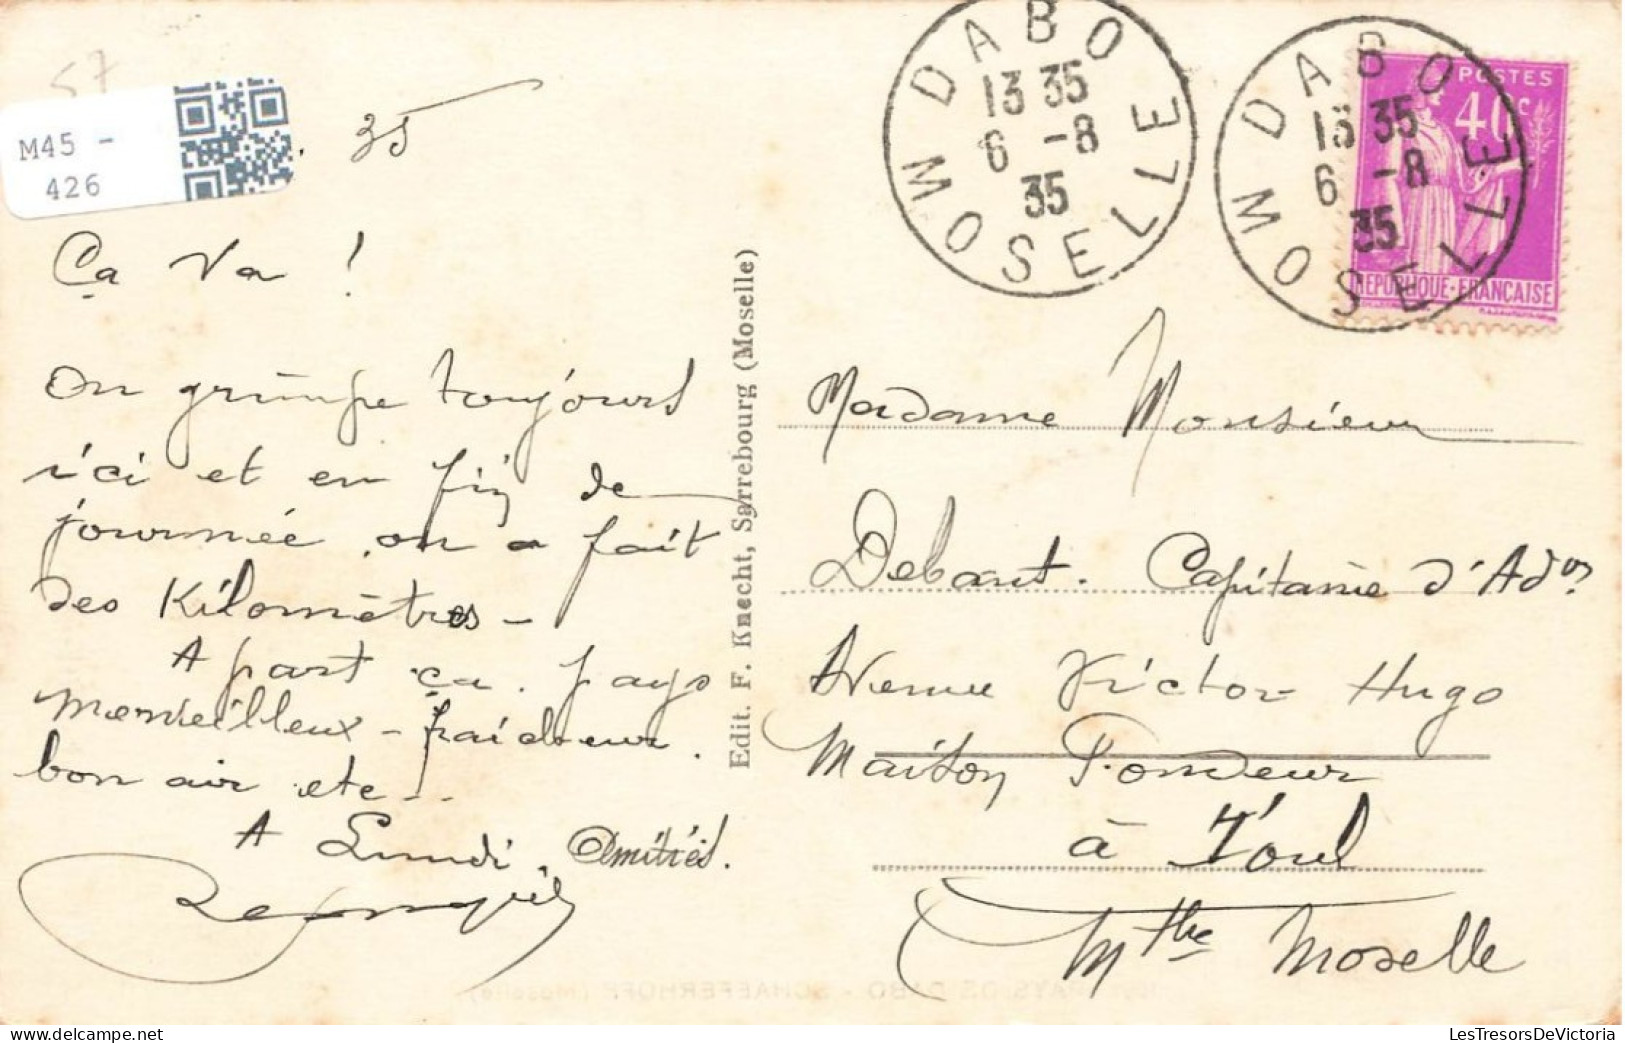 57
M45 -
426
35
Ça va !
On grimpe toujours
ici et en fin de
journée on a fait
des Kilomètres -
A part ça. pays
merveilleux - fraicheur.
bon air etc - -
A Lundi. Amitiés.
Edit. F. Knecht, Sarrebourg (Moselle)
DABO
13 35
6 -8
35
MOSELLE
DABO
13 35
6 -8
35
MOSELLE
POSTES
40c
REPUBLIQUE-FRANCAISE
Madame Monsieur
Debant. Capitaine d'Adon
Avenue Victor Hugo
Maison Pondeur
à Toul
Mthe Moselle
PAYS DE DABO - SCHAEFERHOFF (Moselle)
LesTresorsDeVictoria